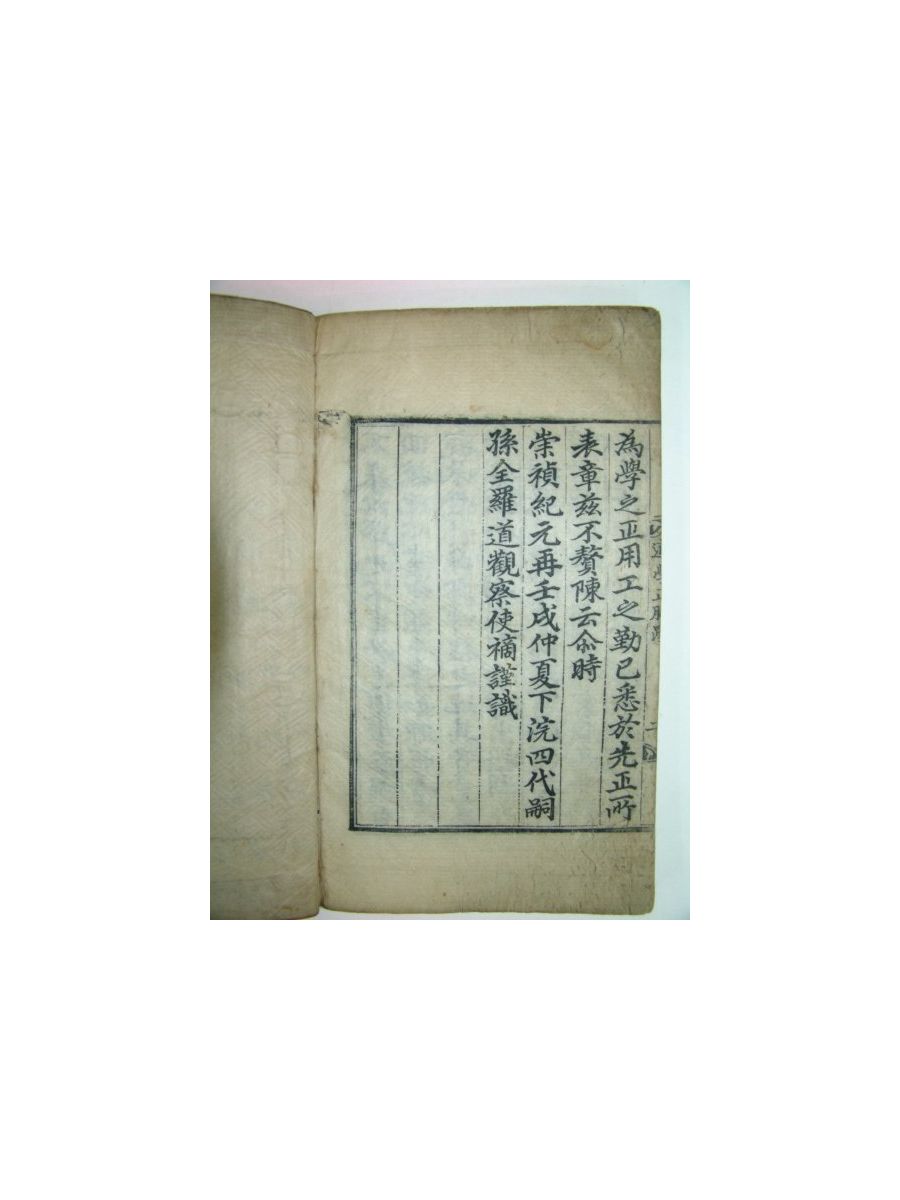 為學之正用工之勤已悉於先正所
表章玆不贅陳云尒時
崇禎紀元再壬戌仲夏下浣四代嗣
孫全羅道觀察使𥛚謹識